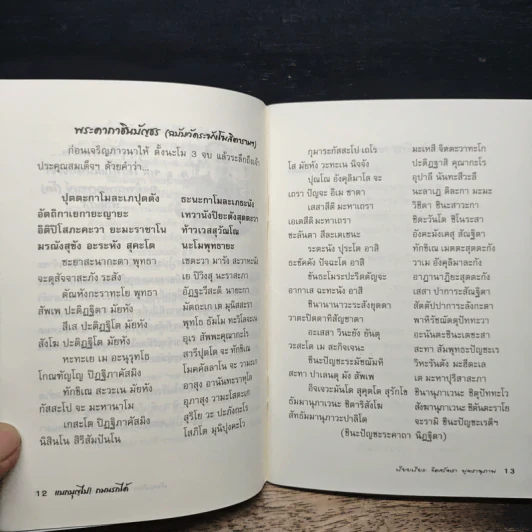 พระคาถาชินบัญชร (ฉบับวัดระฆังโฆสิตาราม)
ก่อนเจริญภาวนาให้ ตั้งนะโม 3 จบ แล้วระลึกถึงเจ้า
ประคุณสมเด็จฯ ด้วยคำว่า...
ปุตตะกาโมละเภปุตตัง ธะนะกาโมละเภธะนัง
อัตถิกาเยกายะญายะ เทวานังปิยะตังสุตตะวา
อิติปิโสภะคะวา ยะมะราชาโน ท้าวเวสสุวัณโณ
มรณังสุขัง อะระหัง สุคะโต นะโมพุทธายะ
ชะยาสะนากะตา พุทธา เชตะวา มารัง สะวาหะนัง
จะตุสัจจาสะภัง ระสัง เย ปิวิงสุ นะราสะภา
ตัณหังกะราทะโย พุทธา อัฏฐะวีสะติ นายะกา
สัพเพ ปะติฏฐิตา มัยหัง มัตถะเก เต มุนิสสะรา
สีเส ปะติฏฐิโต มัยหัง พุทโธ ธัมโม ทะวิโลจะเน
สังโฆ ปะติฏฐิโต มัยหัง อุเร สัพพะคุณากะโร
หะทะเย เม อะนุรุทโธ สารีปุตโต จะ ทักขิเณ
โกณฑัญโญ ปิฏฐิภาคัสมิง โมคคัลลาโน จะ วามะเก
ทักขิเณ สะวะเน มัยหัง อาสุง อานันทะราหุโล
กัสสะโป จะ มะหานาโม อุภาสุง วามะโสตะเก
เกสะโต ปิฏฐิภาคัสมิง สุริโย วะ ปะภังกะโร
นิสินโน สิริสัมปันโน โสภิโต มุนิปุงคะโว
12 แผกบุญ(ไม่) ถนนรกได้
กุมาระกัสสะโป เถโร มะเหสี จิตตะวาทะโก
โส มัยหัง วะทะเน นิจจัง ปะติฏฐาสิ คุณากะโร
ปุณโณ อังคุลิมาโล จะ อุปาลี นันทะสีวะลี
เถรา ปัญจะ อิเม ชาตา นะลาเฏ ติละกา มะมะ
เสสาสีติ มะหาเถรา วิชิตา ชินะสาวะกา
เอเตสีติ มะหาเถรา ชิตะวันโต ชิโนระสา
ชะลันตา สีละเตเชนะ อังคะมังเคสุ สัณฐิตา
ระตะนัง ปุระโต อาสิ ทักขิเณ เมตตะสุตตะกัง
ธะชัคคัง ปัจฉะโต อาสิ วาเม อังคุลิมาละกัง
ขันธะโมระปะริตตัญจะ อาฏานาฏิยะสุตตะกัง
อากาเส ฉะทะนัง อาสิ เสสา ปาการะสัณฐิตา
ชินานานาวะระสังยุตตา สัตตัปปาการะลังกะตา
วาตะปิตตาทิสัญชาตา พาหิรัชฌัตตุปัททะวา
อะเสสา วินะยัง ยันตุ อะนันตะชินะเตชะสา
วะสะโต เม สะกิจเจนะ สะทา สัมพุทธะปัญชะเร
ชินะปัญชะระมัชฌัมหิ วิหะรันตัง มะฮีตะเล
สะทา ปาเลนตุ มัง สัพเพ เต มะหาปุริสาสะภา
อิจเจวะมันโต สุคุตโต สุรักโข ชินานุภาเวนะ ชิตุปัททะโว
ธัมมานุภาเวนะ ชิตาริสังโฆ สังฆานุภาเวนะ ชิตันตะราโย
สัทธัมมานุภาวะปาลิโต จะรามิ ชินะปัญชะเรติฯ
(ชินะปัญชะระคาถา นิฏฐิตา)
13